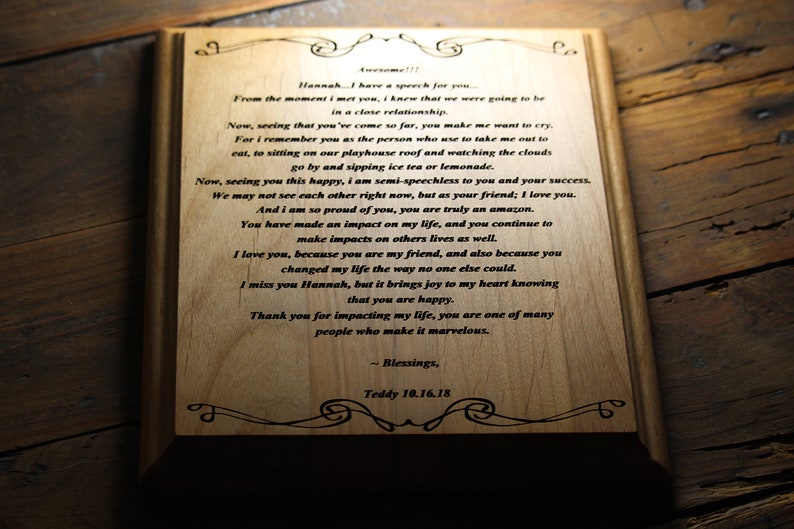 Awesome!!!
Hannah...I have a speech for you...
From the moment i met you, i knew that we were going to be
in a close relationship.
Now, seeing that you've come so far, you make me want to cry.
For i remember you as the person who use to take me out to
eat, to sitting on our playhouse roof and watching the clouds
go by and sipping ice tea or lemonade.
Now, seeing you this happy, i am semi-speechless to you and your success.
We may not see each other right now, but as your friend; I love you.
And i am so proud of you, you are truly an amazon.
You have made an impact on my life, and you continue to
make impacts on others lives as well.
I love you, because you are my friend, and also because you
changed my life the way no one else could.
I miss you Hannah, but it brings joy to my heart knowing
that you are happy.
Thank you for impacting my life, you are one of many
people who make it marvelous.
~ Blessings,
Teddy 10.16.18